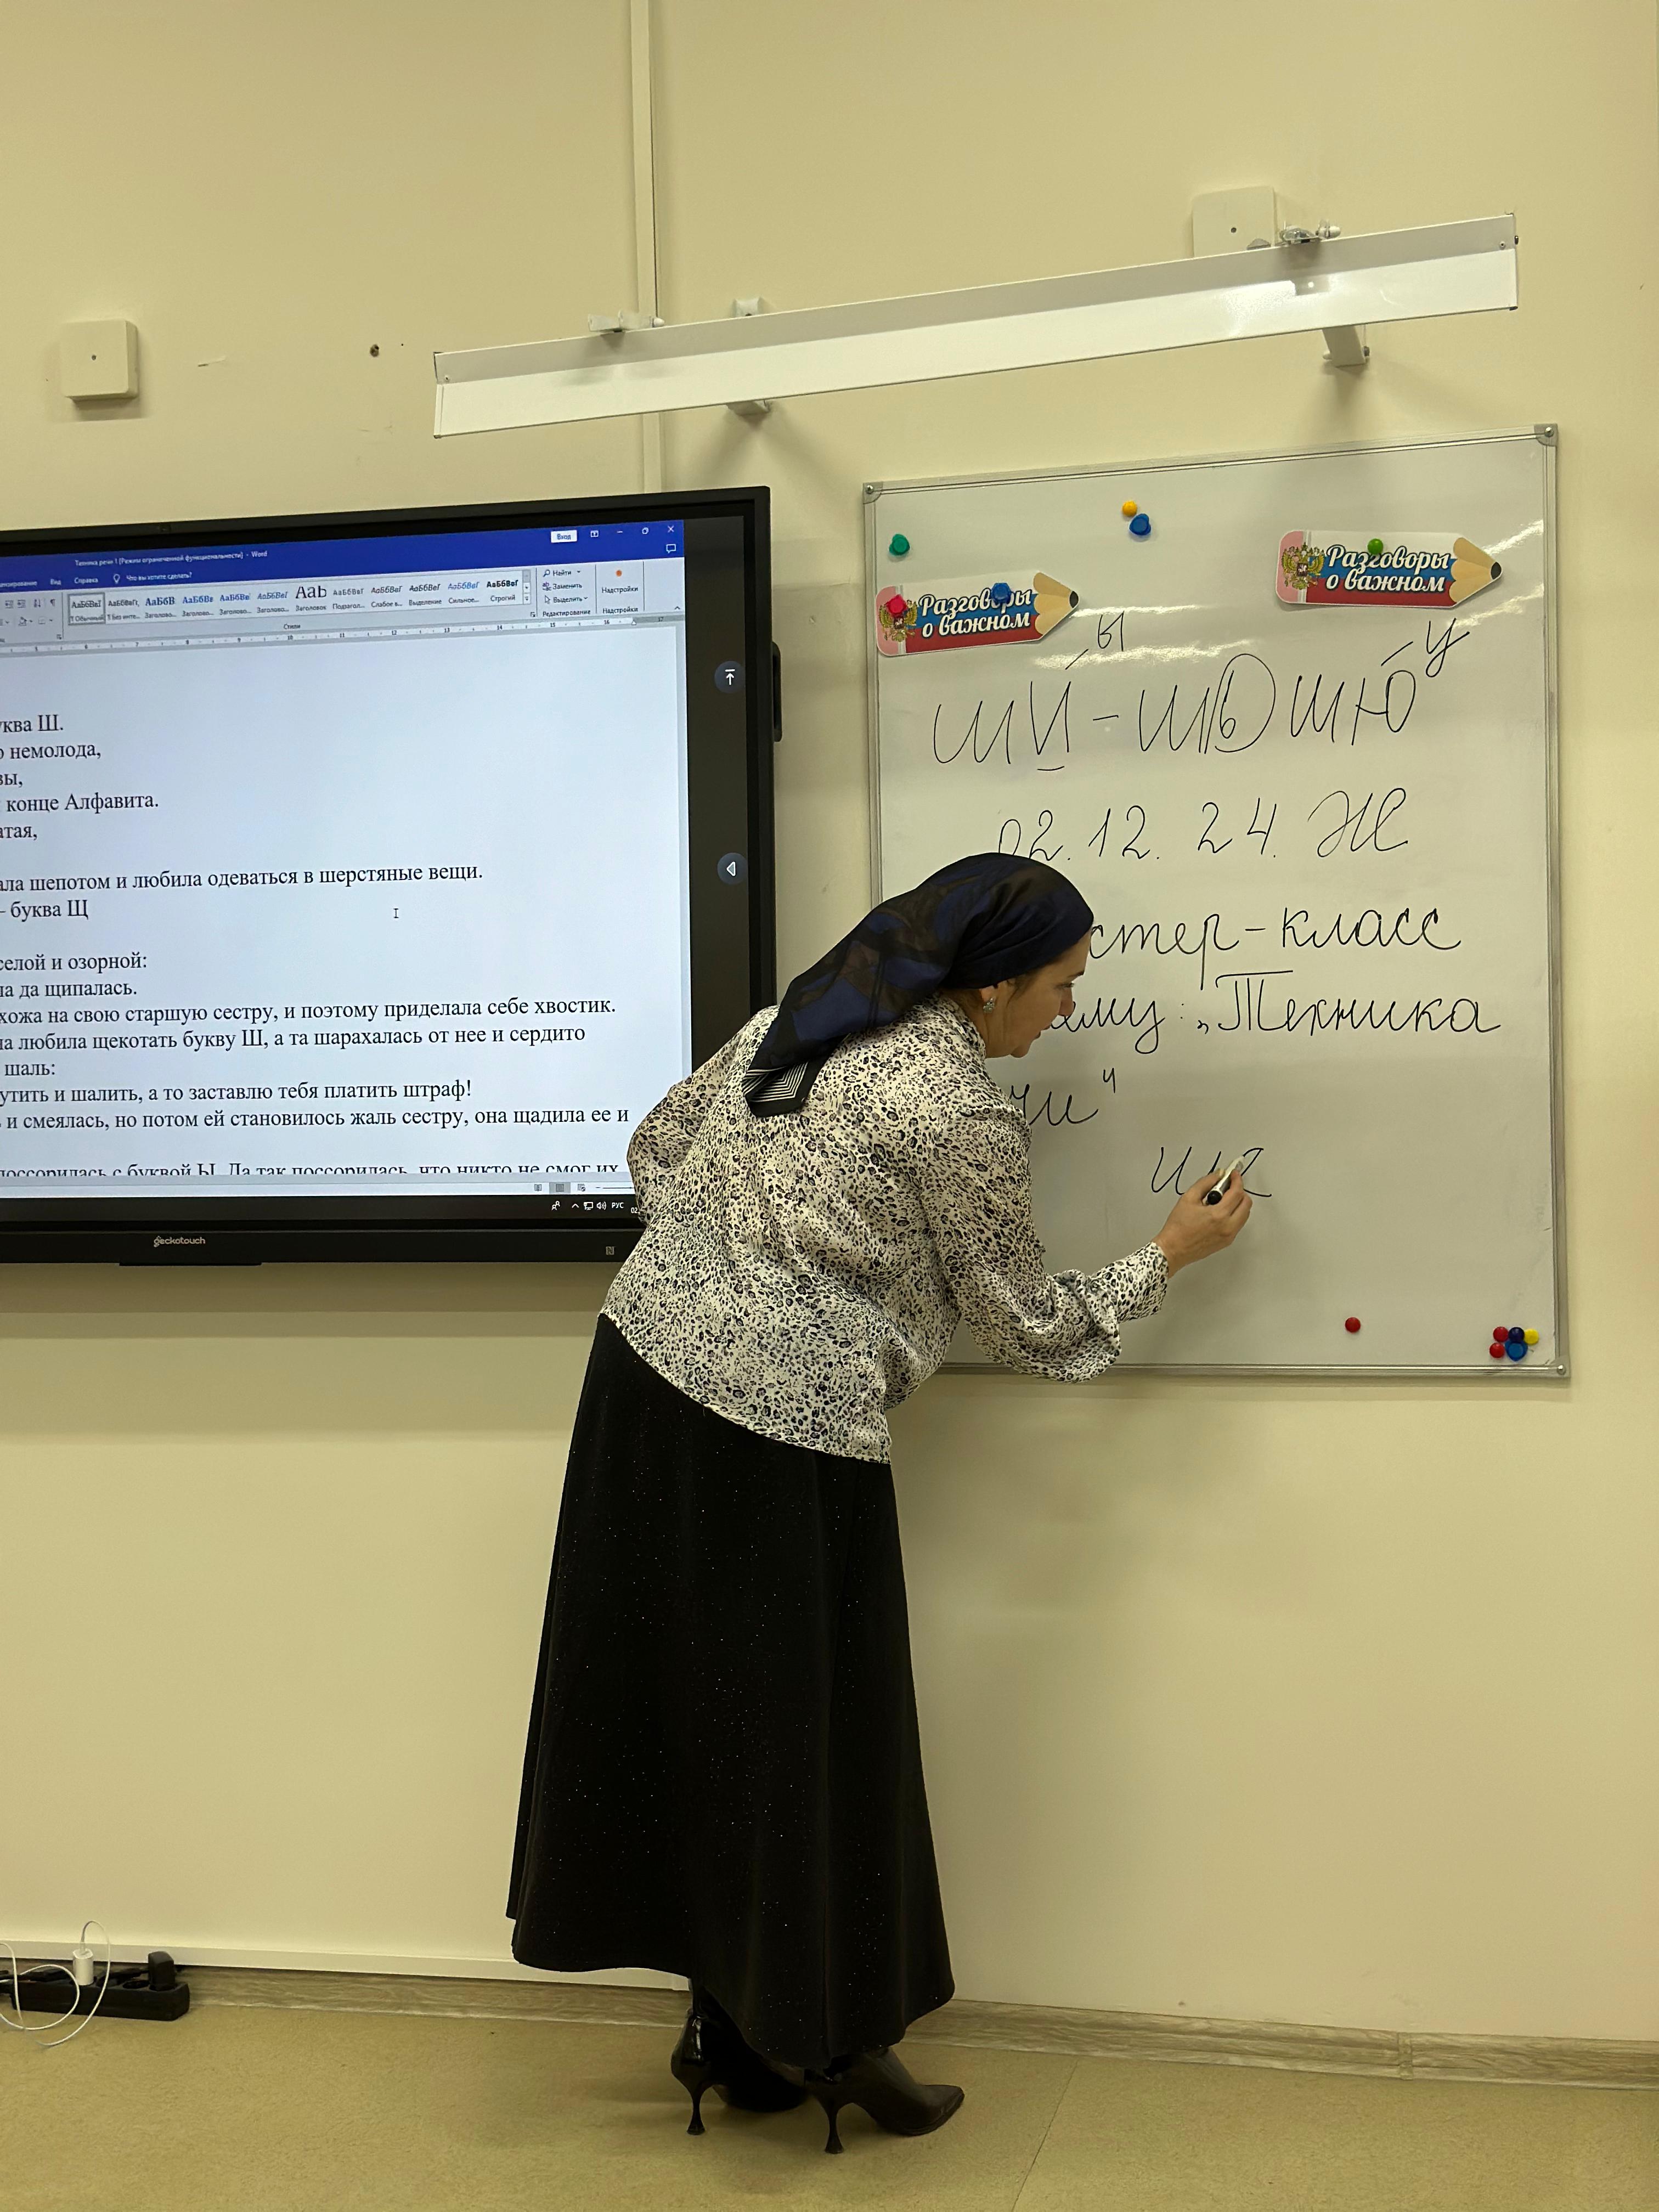 Техника речи 1 [Режим ограниченной функциональности] - Word
Вход
Вид
Справка
Что вы хотите сделать?
АаБбВвГ АаБбВвГ, АаБбВ АаБбВв АаБбВв АаБбВвГ Aab АаБбВвГ АаБбВвГ АаБбВвГ АаБбВвГ АаБбВвГ
¶ Обычный ¶ Без инте... Заголово... Заголово... Заголово... Заголово... Заголовок Подзагол... Слабое в... Выделение Сильное... Строгий
Стили
Найти
Заменить
Выделить
Редактирование
Надстройки
Надстройки
ква Ш.
немолода,
вы,
конце Алфавита.
атая,
ала шепотом и любила одеваться в шерстяные вещи.
– буква Щ
селой и озорной:
ла да щипалась.
хожа на свою старшую сестру, и поэтому приделала себе хвостик.
ла любила щекотать букву Ш, а та шарахалась от нее и сердито
шаль:
утить и шалить, а то заставлю тебя платить штраф!
и смеялась, но потом ей становилось жаль сестру, она щадила ее и
поссорилась с буквой Ы. Да так поссорилась, что никто не смог их
РУС
geckotouch
Разговоры
о важном
Разговоры
о важном
ы
у
02.12.24.
стер-класс
ему: „Техника
чи"